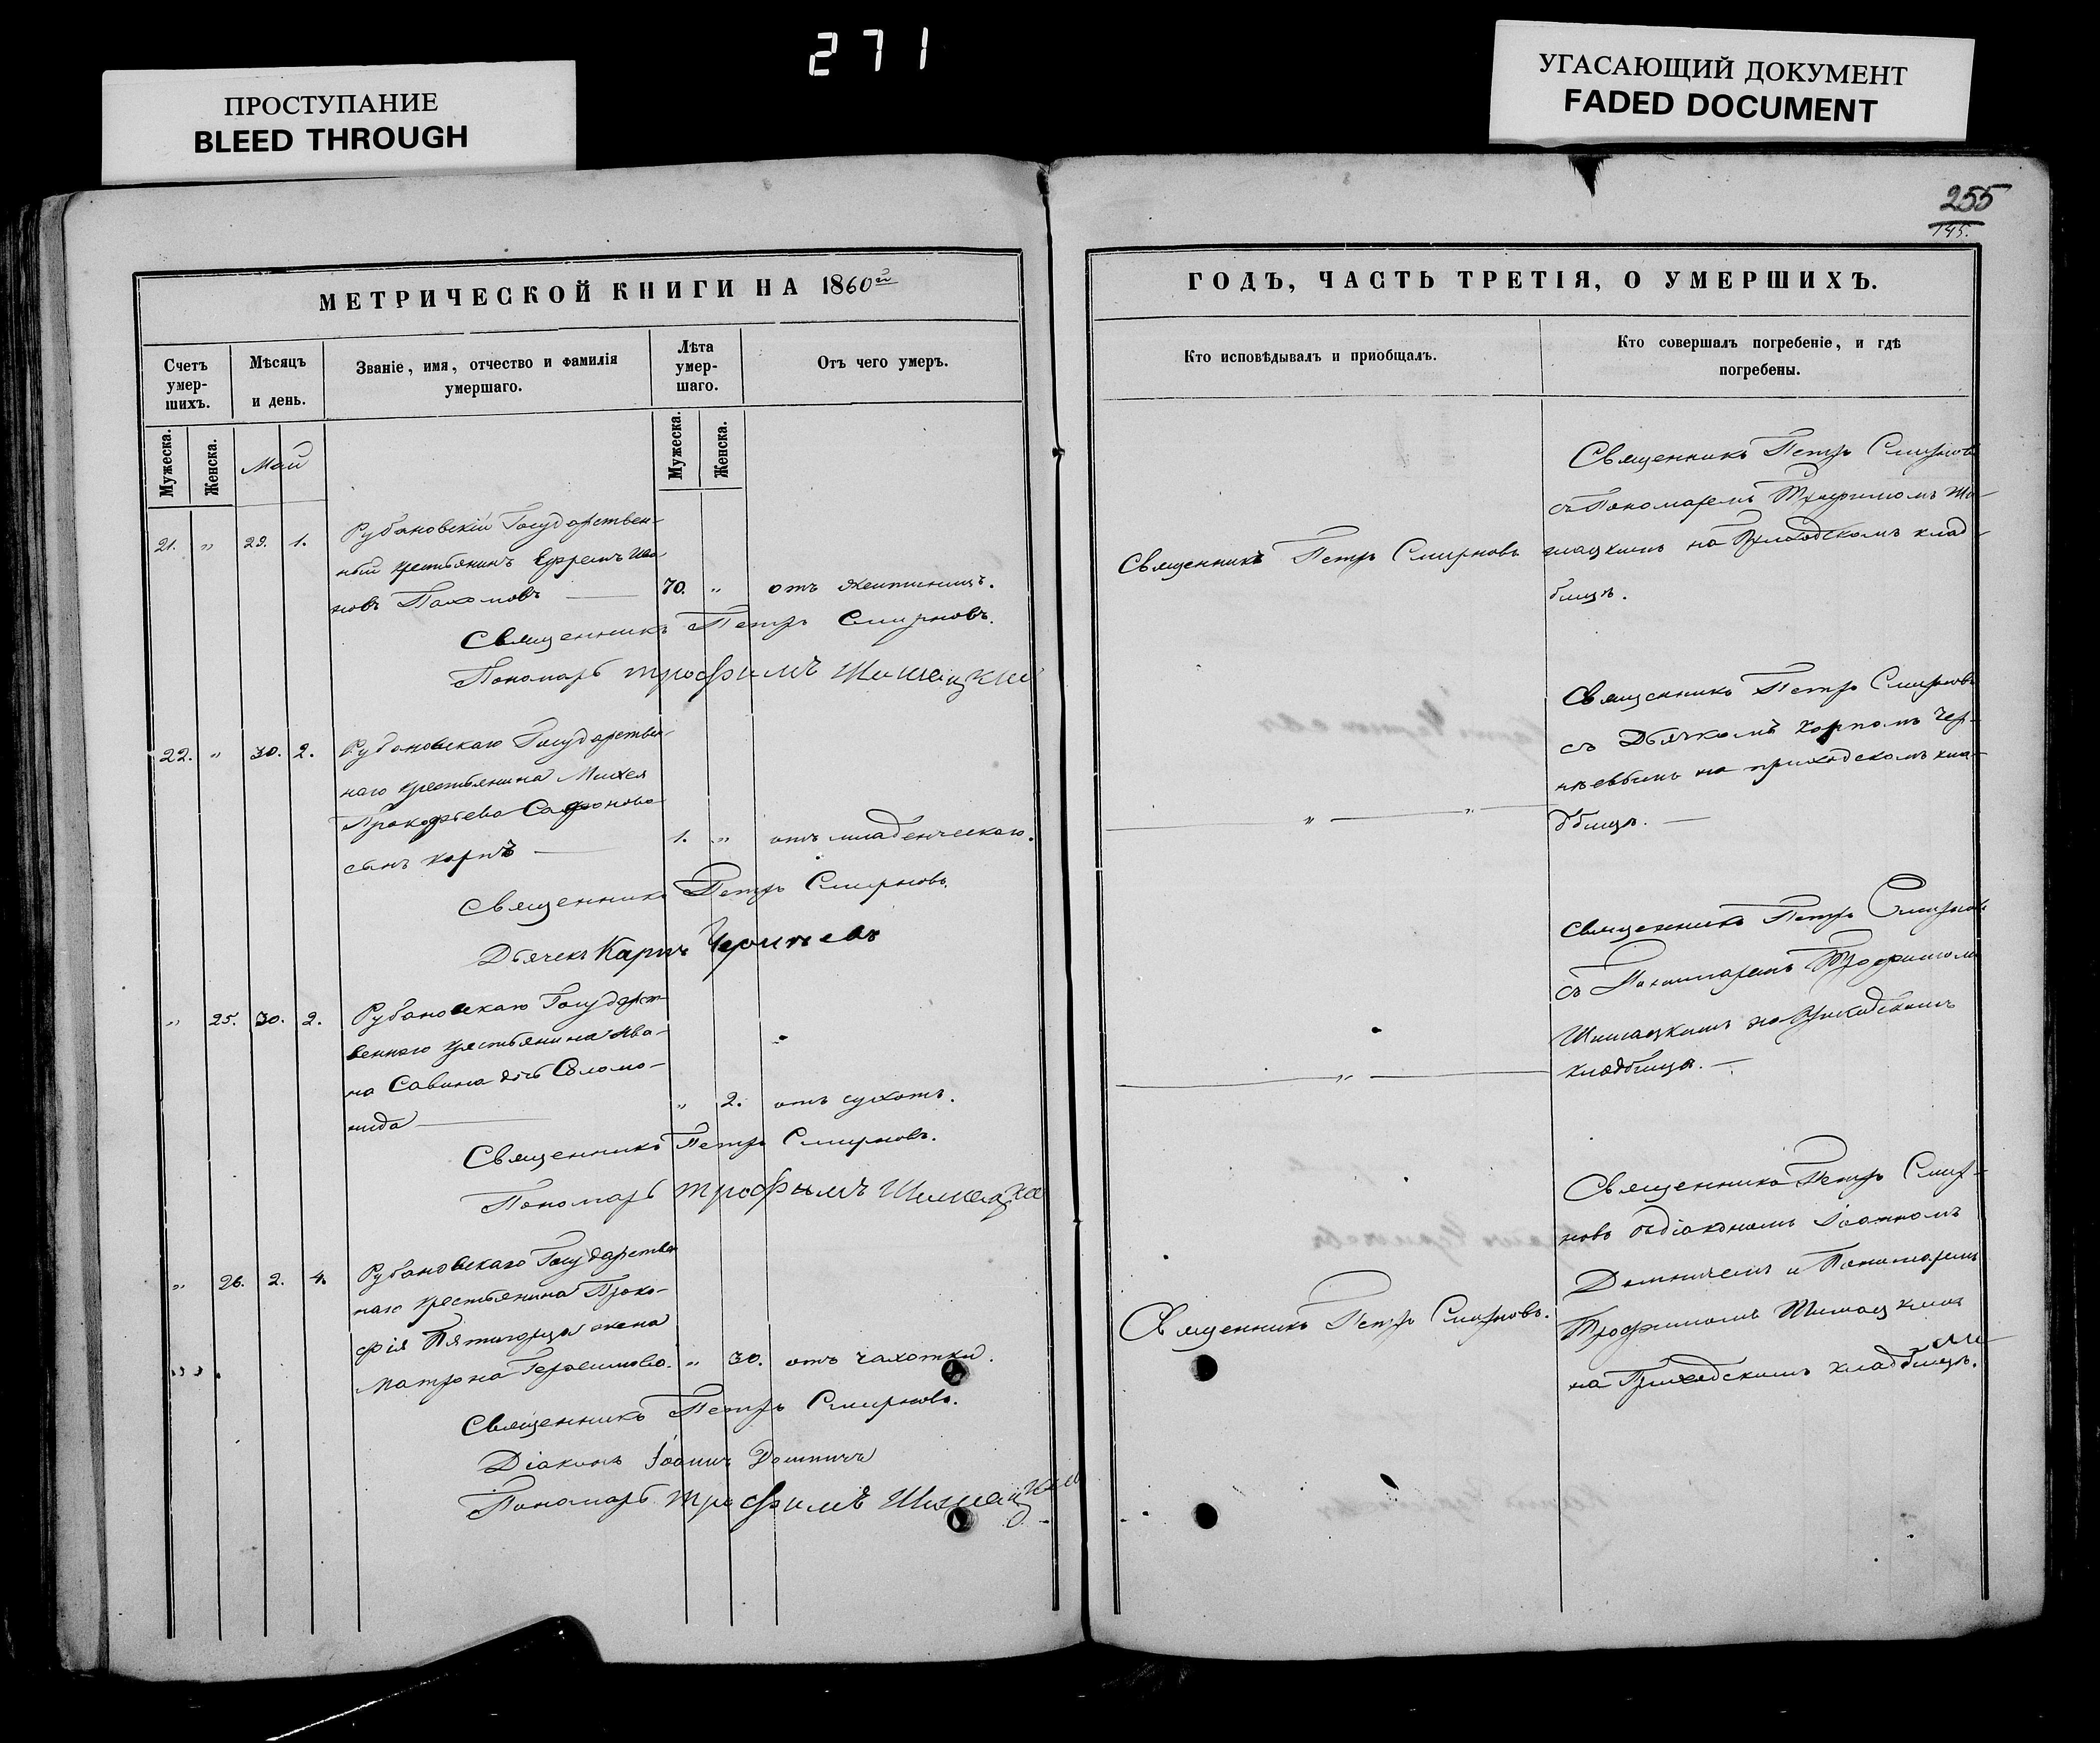 271
ПРОСТУПАНИЕ
BLEED THROUGH
УГАСАЮЩИЙ ДОКУМЕНТ
FADED DOCUMENT
255
145.
МЕТРИЧЕСКОЙ КНИГИ НА 1860й
Счетъ умер-шихъ.
Мѣсяцъ и день.
Званіе, имя, отчество и фамилія умершаго.
Лѣта умер-шаго.
Отъ чего умеръ.
Мужеска.
Женска.
Май
Мужеска.
Женска.
21. " 29. 1. Рубановскій Государствен-
ный крестьянинъ Ефремъ Ива-
новъ Пахомовъ — 70. " отъ
Священникъ Петръ Смирновъ.
Пономарь Трофимъ Шишацкий
22. " 30. 2. Рубановскаго Государствен-
наго крестьянина Михея
Прокофьева Сафонова
сынъ Карпъ — 1. " отъ младенческаго.
Священникъ Петръ Смирновъ.
Дьячекъ Карпъ
" 25. 30. 2. Рубановскаго Государст-
веннаго крестьянина Ива-
на Савина дочь Соломо-
нида — " 2. отъ сухотъ.
Священникъ Петръ Смирновъ.
Пономарь Трофимъ
" 26. 2. 4. Рубановскаго Государствен
наго крестьянина Проко-
фія Пятигорца жена
Матрона Герасимова. " 30. отъ чахотки.
Священникъ Петръ Смирновъ.
Діаконъ Іоаннъ
Пономарь Трофимъ Шишацкий
ГОДЪ, ЧАСТЬ ТРЕТІЯ, О УМЕРШИХЪ.
Кто исповѣдывалъ и пріобщалъ.
Кто совершалъ погребеніе, и гдѣ погребены.
Священникъ Петръ Смирновъ
Священникъ Петръ Смирновъ
съ Пономаремъ Трофимомъ Ши-
шацкимъ на Приходскомъ клад-
бищѣ.
" — "
Священникъ Петръ Смирновъ
съ Дьячкомъ Карпомъ Чер-
на приходскомъ кла-
дбищѣ. —
"
Священникъ Петръ Смирновъ
съ Пономаремъ Трофимомъ
Шишацкимъ на Приходскомъ
кладбищѣ. —
Священникъ Петръ Смирновъ.
Священникъ Петръ Смир-
новъ съ діакономъ Іоанномъ
и Пономаремъ
Трофимомъ Шишацкимъ
на Приходскомъ кладбищѣ.